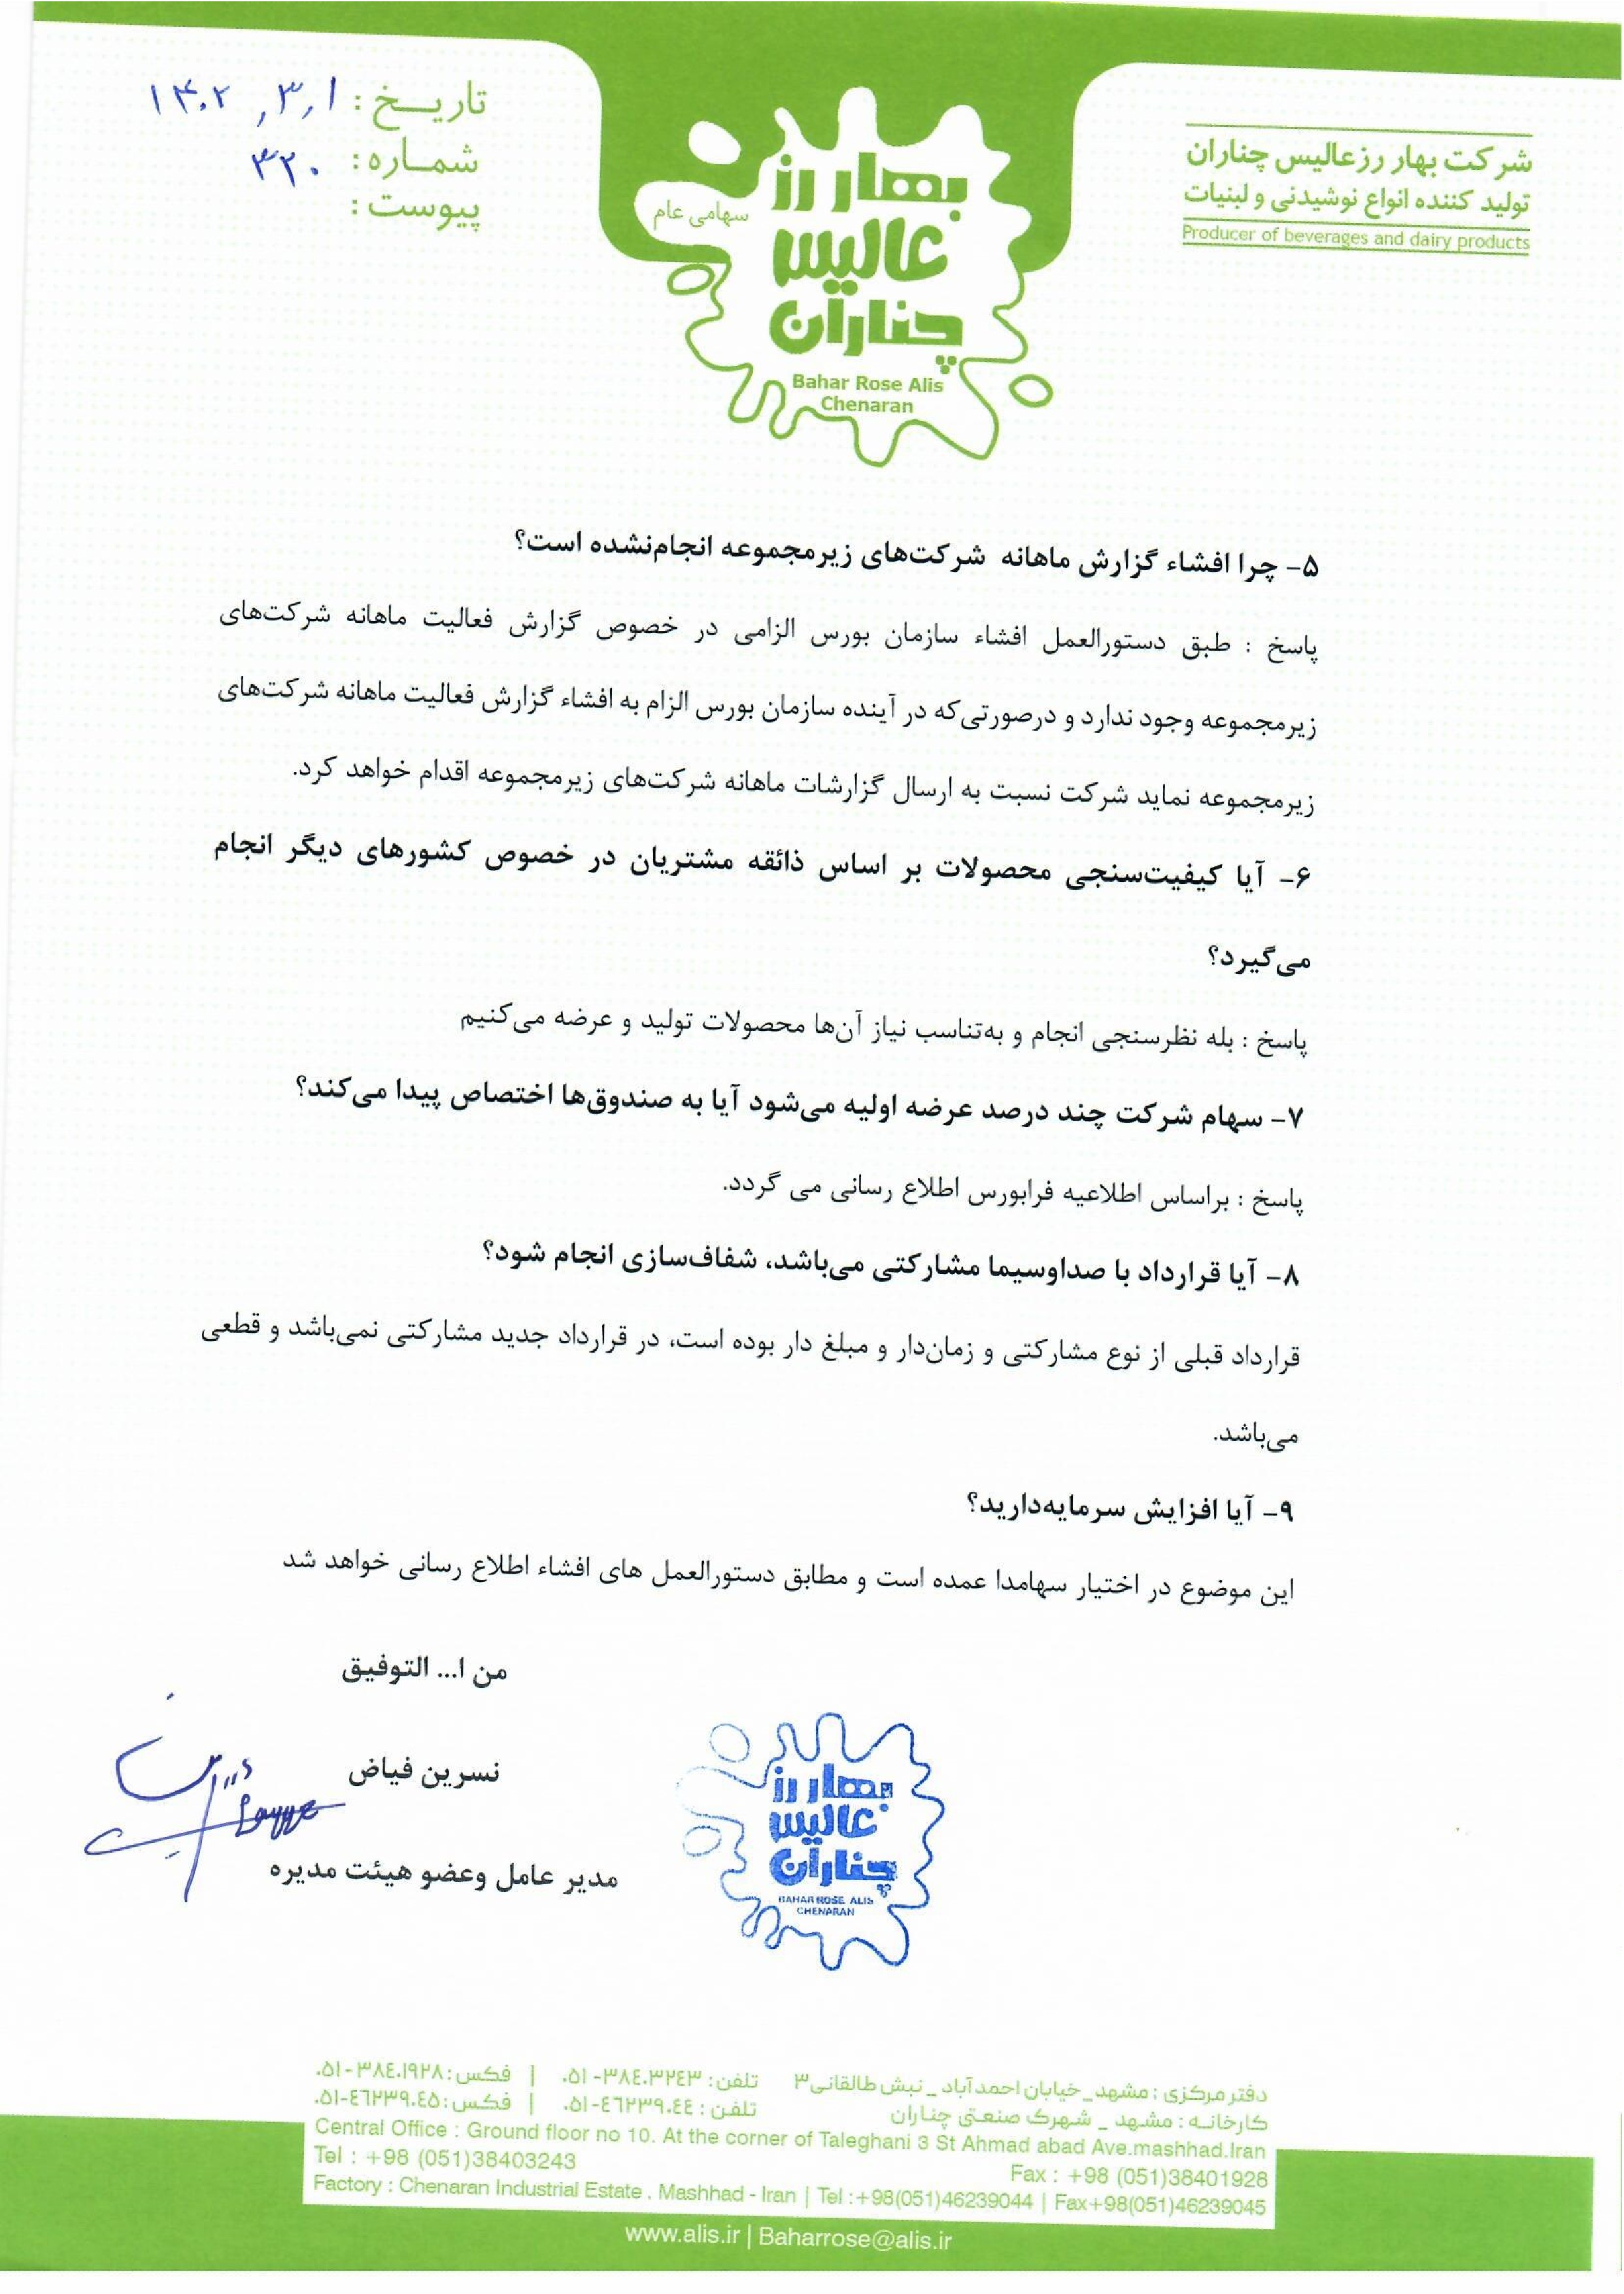 تاریخ: ۱۴۰۲,۳,۱
شماره: ۳۲۰
پیوست:
بهار رز
عالیس
چناران
سهامی عام
Bahar Rose Alis
Chenaran
شرکت بهار رز عالیس چناران
تولید کننده انواع نوشیدنی و لبنیات
Producer of beverages and dairy products
۵- چرا افشاء گزارش ماهانه شرکت‌های زیرمجموعه انجام‌نشده است؟
پاسخ : طبق دستورالعمل افشاء سازمان بورس الزامی در خصوص گزارش فعالیت ماهانه شرکت‌های
زیرمجموعه وجود ندارد و درصورتی‌که در آینده سازمان بورس الزام به افشاء گزارش فعالیت ماهانه شرکت‌های
زیرمجموعه نماید شرکت نسبت به ارسال گزارشات ماهانه شرکت‌های زیرمجموعه اقدام خواهد کرد.
۶- آیا کیفیت‌سنجی محصولات بر اساس ذائقه مشتریان در خصوص کشورهای دیگر انجام
می‌گیرد؟
پاسخ : بله نظرسنجی انجام و به‌تناسب نیاز آن‌ها محصولات تولید و عرضه می‌کنیم
۷- سهام شرکت چند درصد عرضه اولیه می‌شود آیا به صندوق‌ها اختصاص پیدا می‌کند؟
پاسخ : براساس اطلاعیه فرابورس اطلاع رسانی می گردد.
۸- آیا قرارداد با صداوسیما مشارکتی می‌باشد، شفاف‌سازی انجام شود؟
قرارداد قبلی از نوع مشارکتی و زمان‌دار و مبلغ دار بوده است، در قرارداد جدید مشارکتی نمی‌باشد و قطعی
می‌باشد.
۹- آیا افزایش سرمایه‌دارید؟
این موضوع در اختیار سهامدا عمده است و مطابق دستورالعمل های افشاء اطلاع رسانی خواهد شد
من ا... التوفیق
نسرین فیاض
مدیر عامل وعضو هیئت مدیره
بهار رز
عالیس
چناران
BAHAR ROSE ALIS
CHENARAN
دفتر مرکزی : مشهد_ خیابان احمد آباد _ نبش طالقانی۳ تلفن: ۳۸۴۰۳۲۴۳-۰۵۱ | فکس: ۳۸۴۰۱۹۲۸-۰۵۱
کارخانه : مشهد _ شهرک صنعتی چناران تلفن : ۴۶۲۳۹۰۴۴-۰۵۱ | فکس: ۴۶۲۳۹۰۴۵-۰۵۱
Central Office : Ground floor no 10. At the corner of Taleghani 3 St Ahmad abad Ave.mashhad.Iran
Tel : +98 (051)38403243 Fax : +98 (051)38401928
Factory : Chenaran Industrial Estate . Mashhad - Iran | Tel :+98(051)46239044 | Fax+98(051)46239045
www.alis.ir | Baharrose@alis.ir